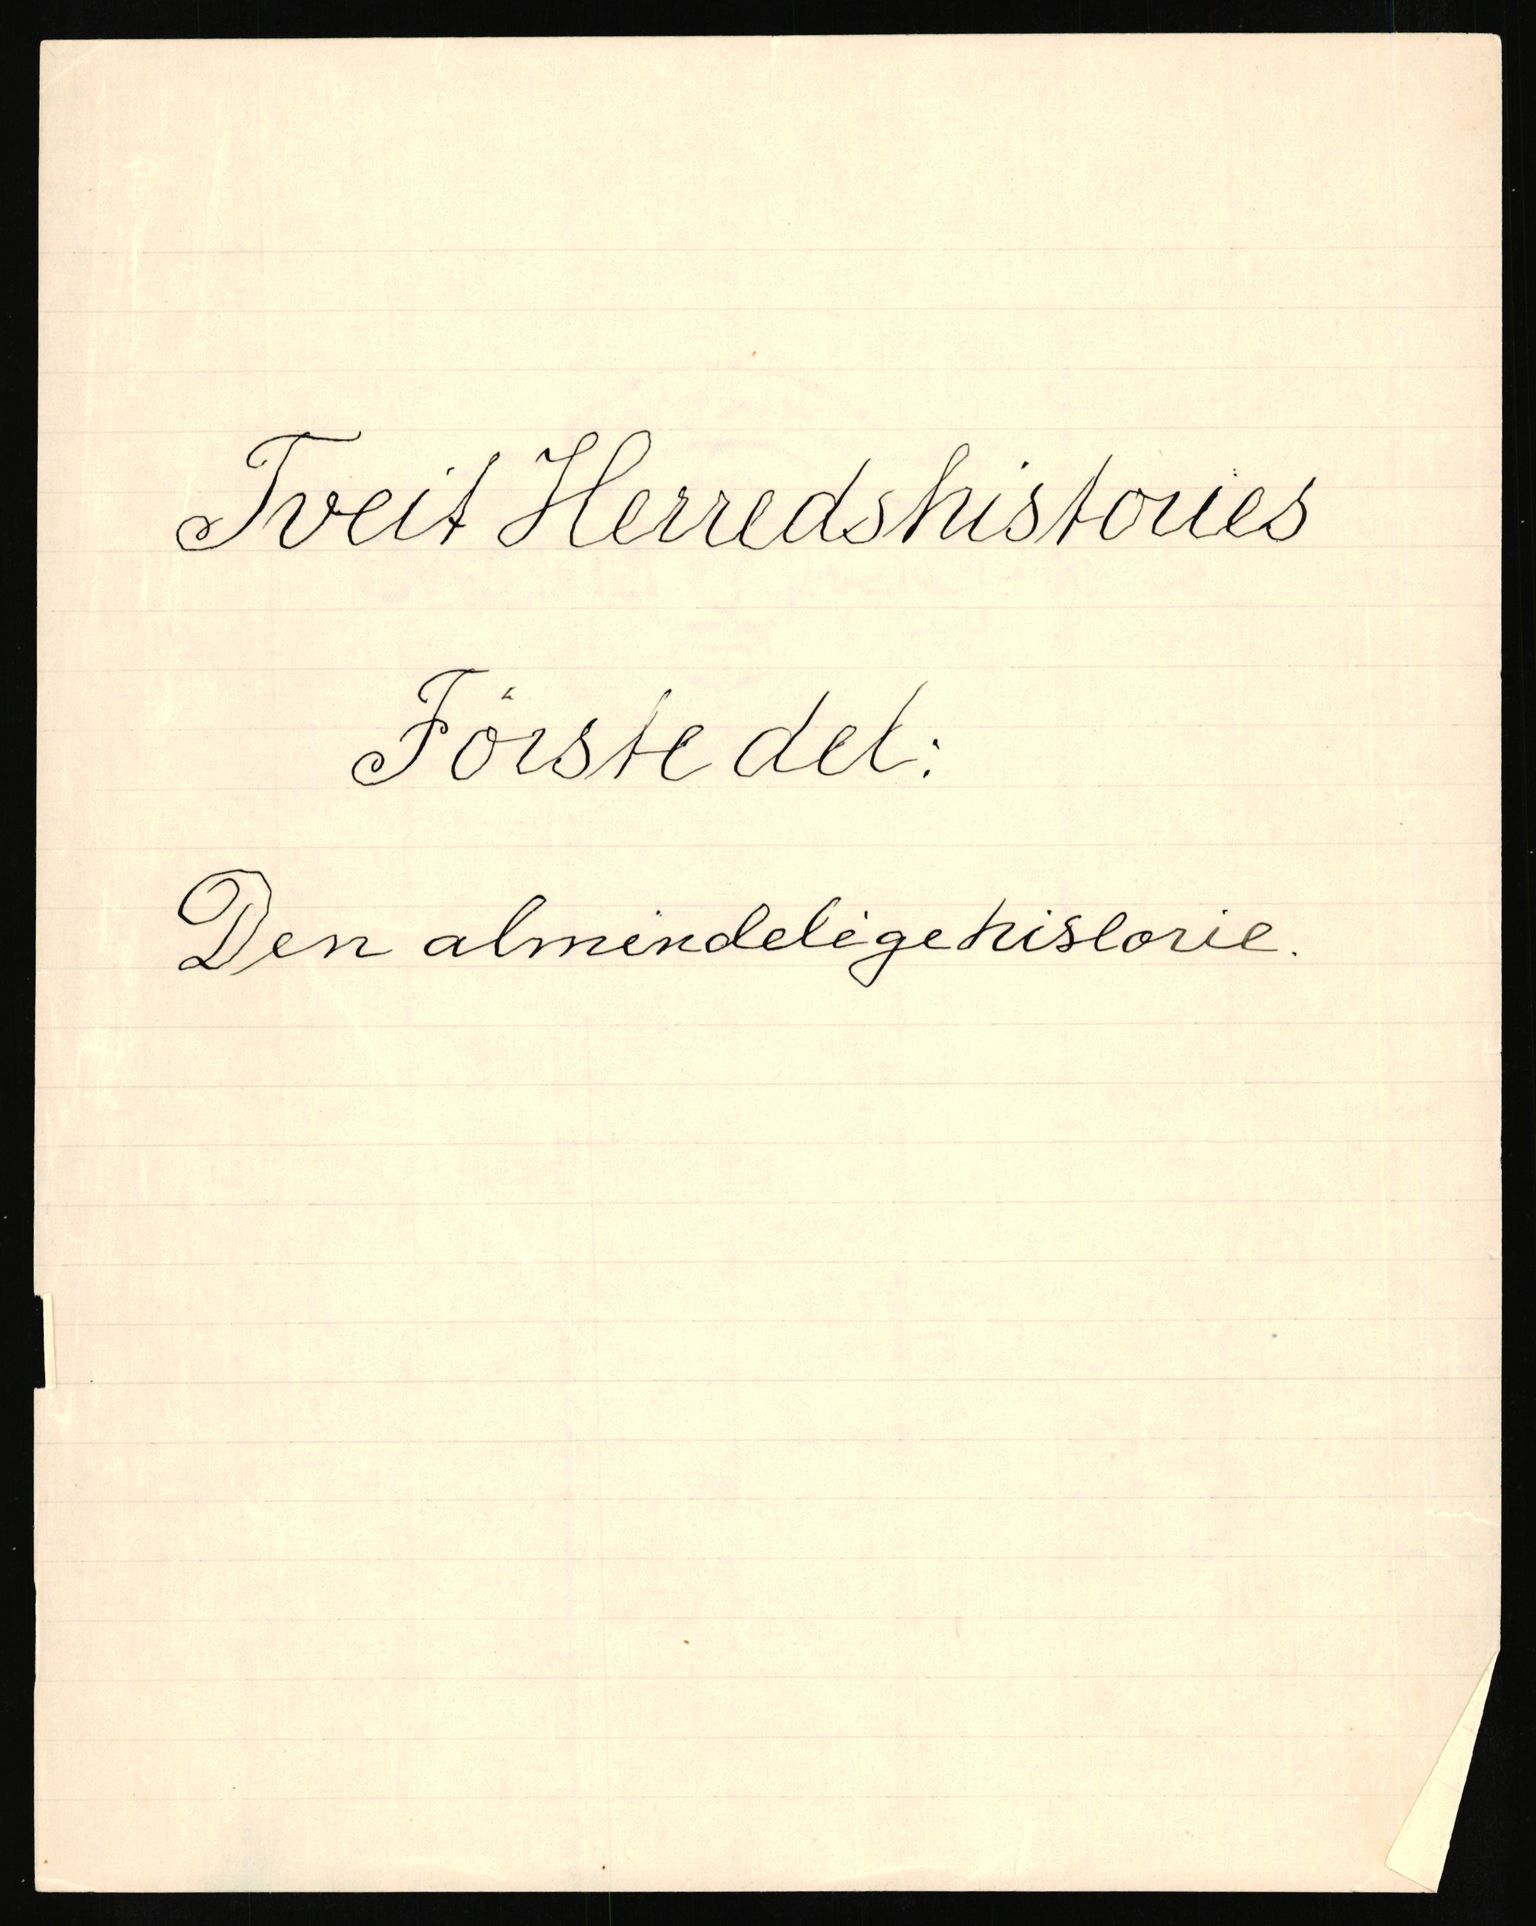 Tveit Herredshistories
Förste del:
Den almindelige historie.